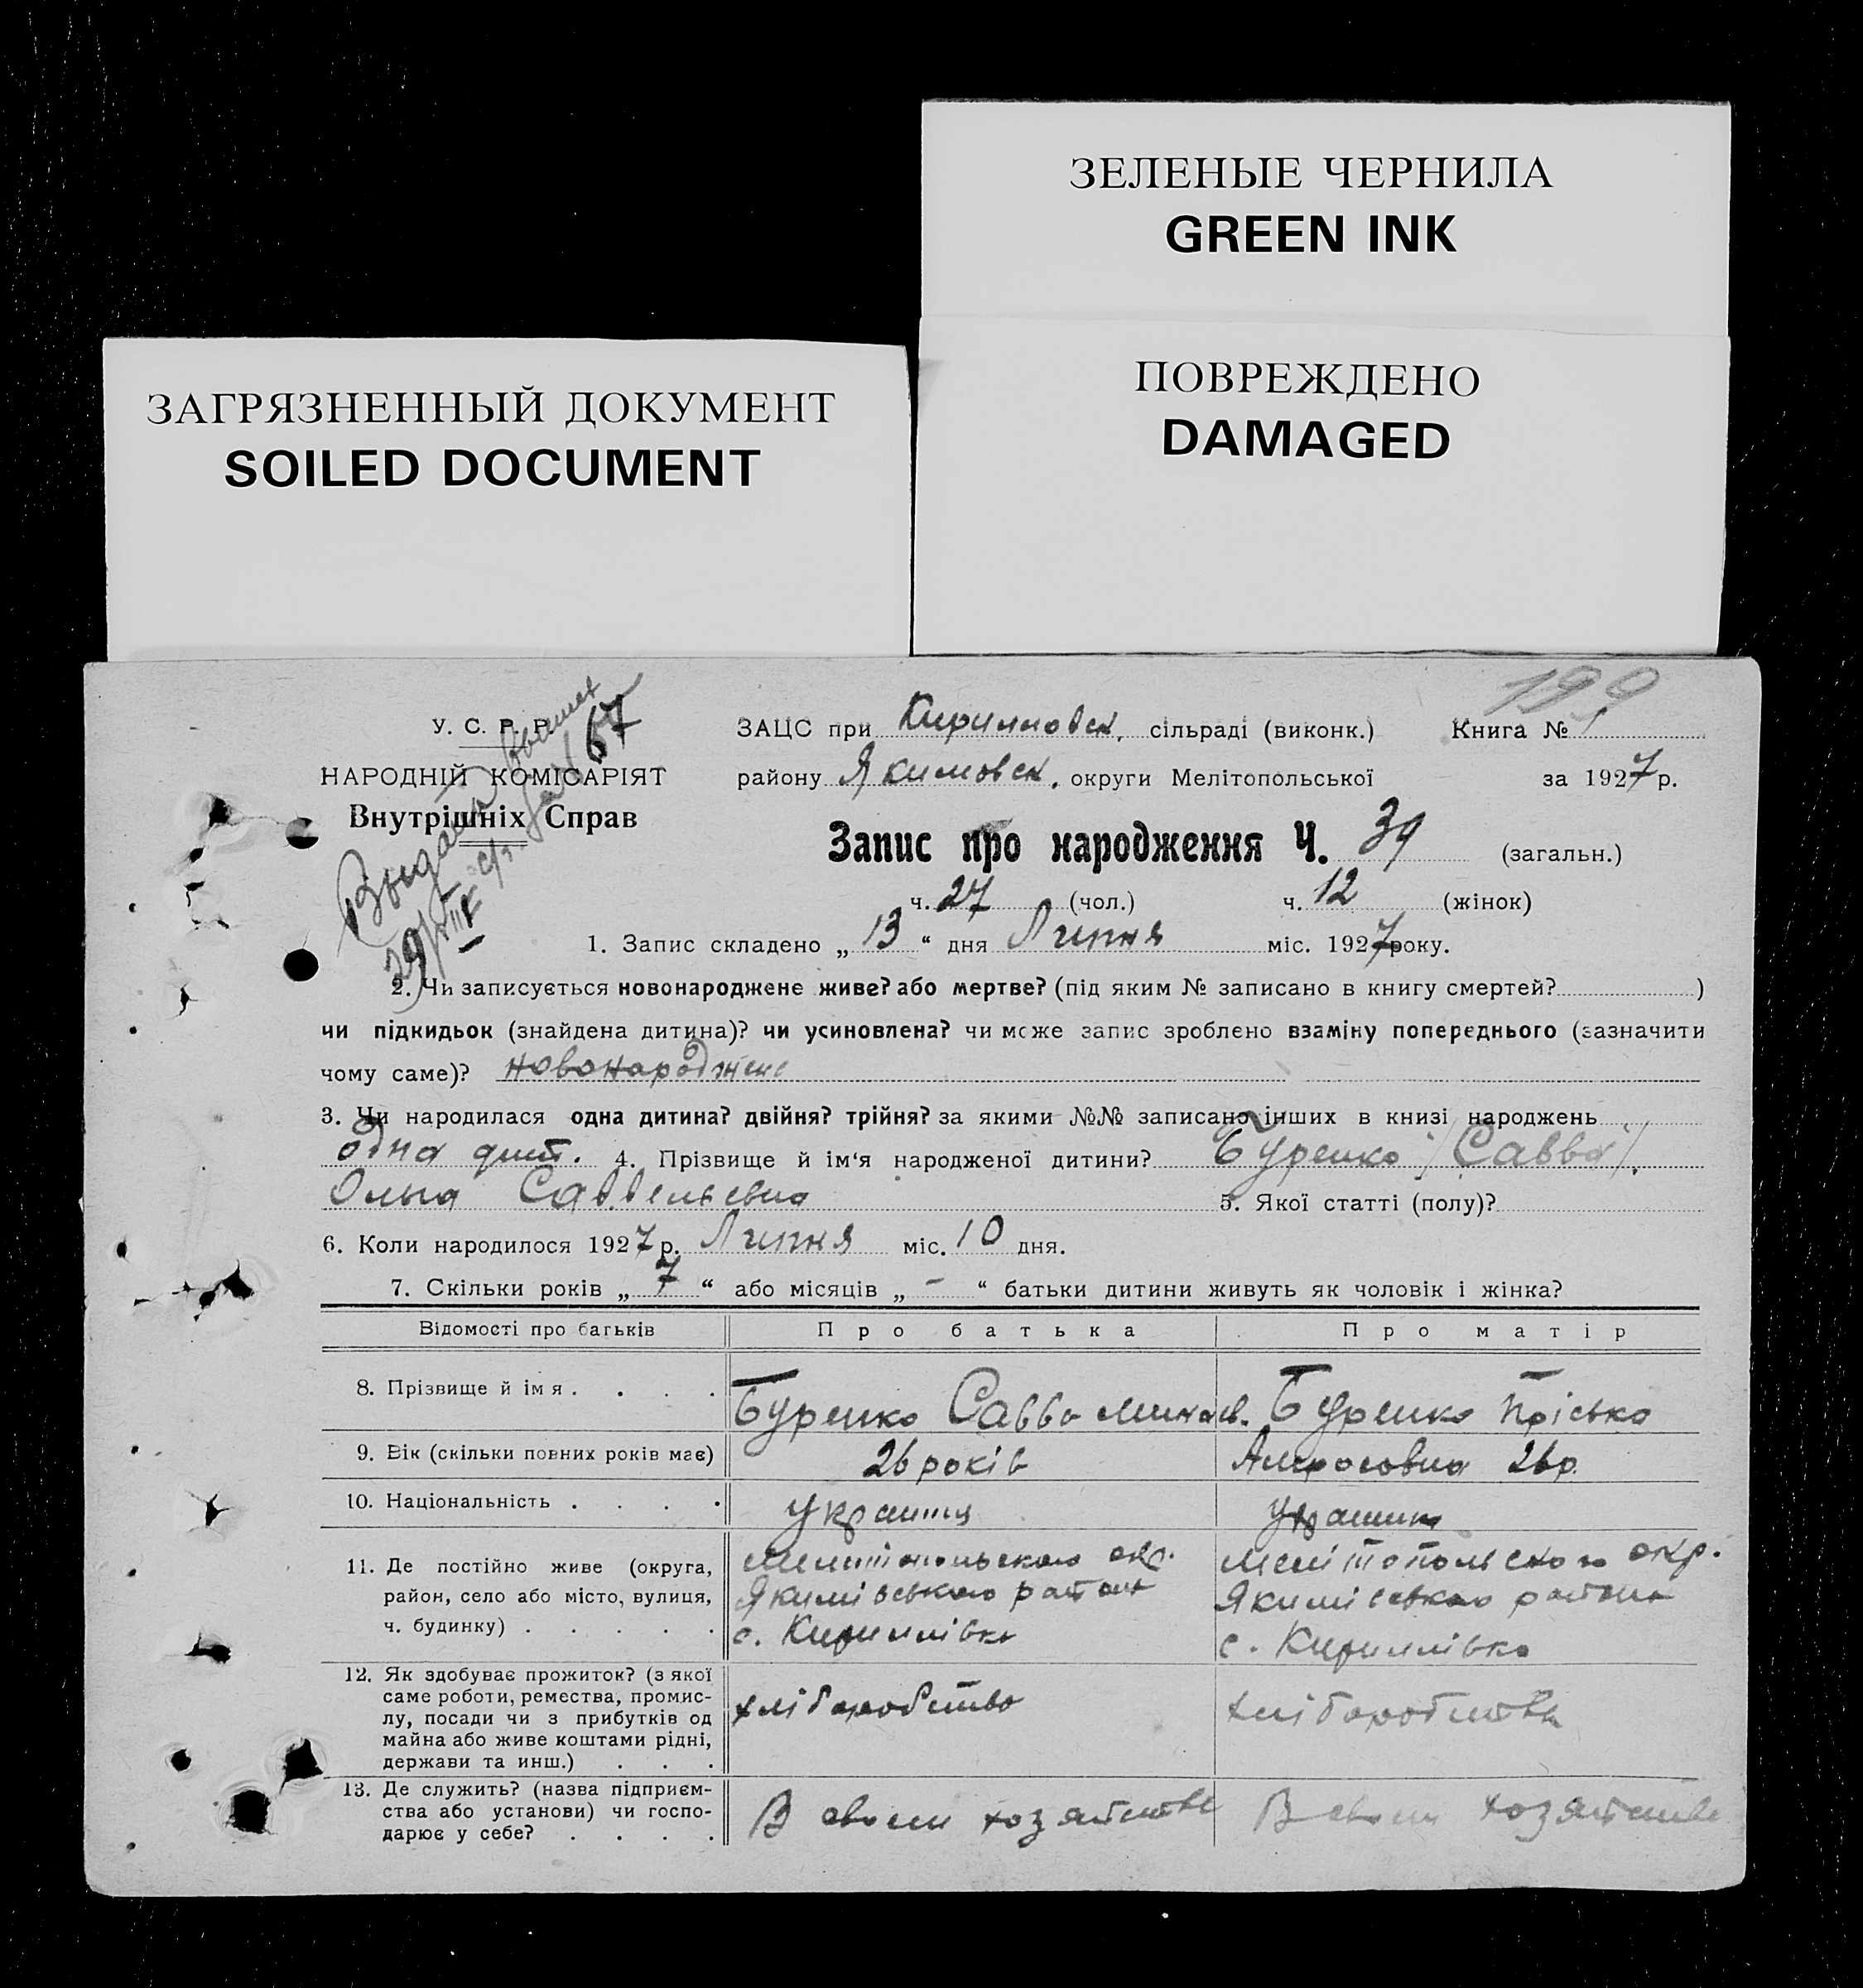 ЗЕЛЕНЫЕ ЧЕРНИЛА
GREEN INK
ПОВРЕЖДЕНО
DAMAGED
ЗАГРЯЗНЕННЫЙ ДОКУМЕНТ
SOILED DOCUMENT
199
У. С. Р. Р. 67
ЗАЦС при Кирилловск. сільраді (виконк.) Книга № 1
НАРОДНІЙ КОМІСАРІЯТ
району Якимовск. округи Мелітопольської за 1927 р.
Внутрішніх Справ
Запис про народження Ч. 39 (загальн.)
ч. 27 (чол.) ч. 12 (жінок)
1. Запис складено „ 13 “ дня Липня міс. 1927 року.
2. Чи записується новонароджене живе? або мертве? (під яким № записано в книгу смертей? )
чи підкидьок (знайдена дитина)? чи усиновлена? чи може запис зроблено взаміну попереднього (зазначити
чому саме)? новонароджене
3. Чи народилася одна дитина? двійня? трійня? за якими №№ записано інших в книзі народжень
одна дит. 4. Прізвище й ім‘я народженої дитини? Буренко /Савва/.
Ольга Савельевна 5. Якої статті (полу)?
6. Коли народилося 1927 р. Липня міс. 10 дня.
7. Скільки років „ 7 “ або місяців „ - “ батьки дитини живуть як чоловік і жінка?
Відомості про батьків Про батька Про матір
8. Прізвище й імя. . . . . Буренко Савва Минаев. Буренко Пріська
9. Вік (скільки повних років має) 26 років Амросовна 26 р.
10. Національність . . . . украинц украинк
11. Де постійно живе (округа, Мелітопольского окр. Мелітопольского окр.
район, село або місто, вулиця, Якимівського района Якимівського района
ч. будинку) . . . . . с. Кириллівка с. Кириллівка
12. Як здобуває прожиток? (з якої
саме роботи, ремества, промис- хліборобство хліборобства
лу, посади чи з прибутків од
майна або живе коштами рідні,
держави та инш.) . . .
13. Де служить? (назва підприєм-
ства або установи) чи госпо- В своем хозяйстве В своем хозяйстве
дарює у себе? . . . .